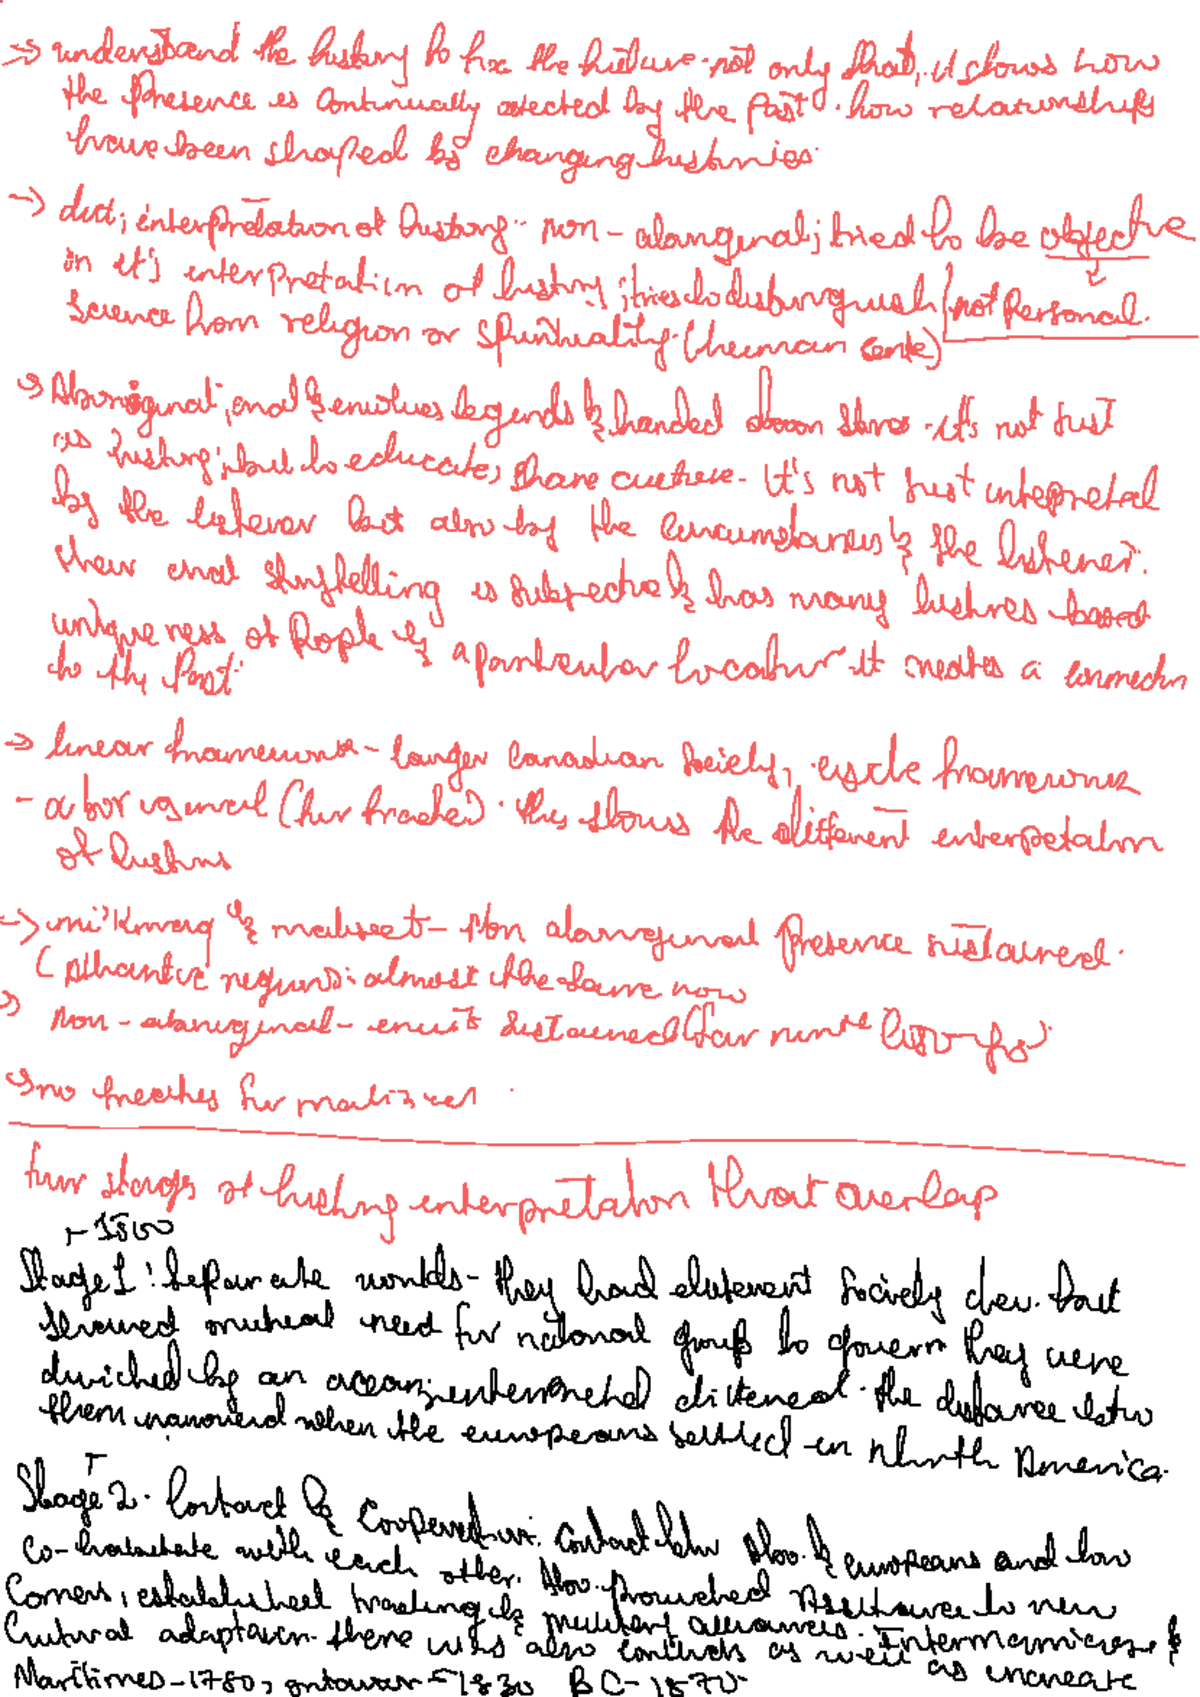 → understand the history to fix the future. not only that, it shows how
the Presence is Continually affected by the past. how relationships
have been shaped by changing histories.
→ diff; interpretation of history. non-aboriginal; tried to be objective
in it's interpretation of history; tries to distinguish not Personal.
Science from religion or spirituality. (human centre)
→ Aboriginal; oral & envolves legends & handed down stories. it's not just
as history; but to educate, share culture. It's not just interpreted
by the listener but also by the circumstances & the listener.
their oral storytelling is subjective & has many histories based
uniqueness of People & a particular location it creates a connection
to the Past.
→ linear framework - larger Canadian Society, cycle framework
- aboriginal (her teacher). this shows the different interpretation
of history
→ mi'kmaq & maliseet - Non aboriginal Presence sustained.
(Atlantic regions: almost the same now
→ Non-aboriginal - inuit sustained (far north
→ no treaties for maliseet
four stages of history interpretation that overlap
- 1500
Stage 1: Separate worlds - they had different Society dev. but
showed mutual need for national groups to govern they were
divided by an ocean; differed. the distance btw
them narrowed when the europeans settled in North America.
Stage 2. Contact & Cooperation. contact btw Abo. & europeans and how
co-habitate with each other. Abo. provided Assistance to new
Comers, established trading & military alliances. Intermarriages &
Cultural adaptation. there was also conflicts as well as increase
Maritimes - 1780, ontario - 1830 BC - 1870